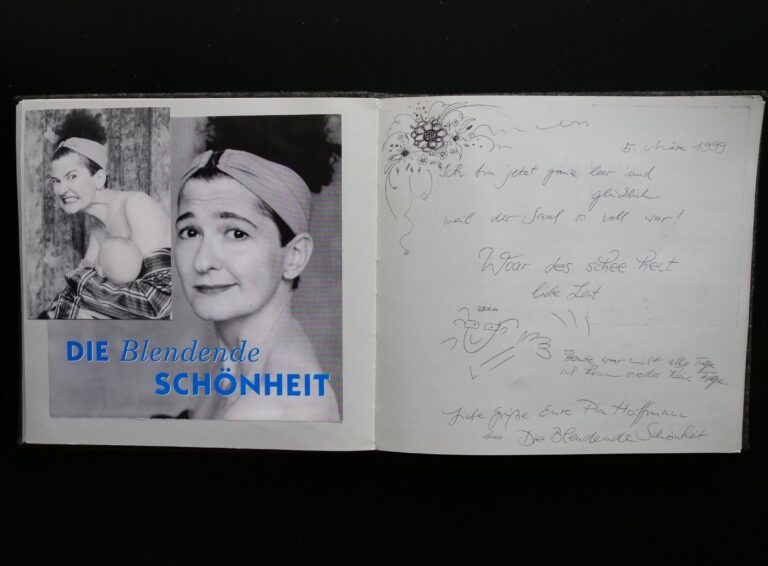 DIE Blendende
SCHÖNHEIT
5. März 1999
Ich bin jetzt ganz leer und
glücklich
weil der Saal so voll war!
Woar des schee heit
liebe Leit
Heute war nicht alle Tage
ich komm wieder keine Frage
Liebe Grüße Eure Pia Hoffmann
Die Blendende Schönheit